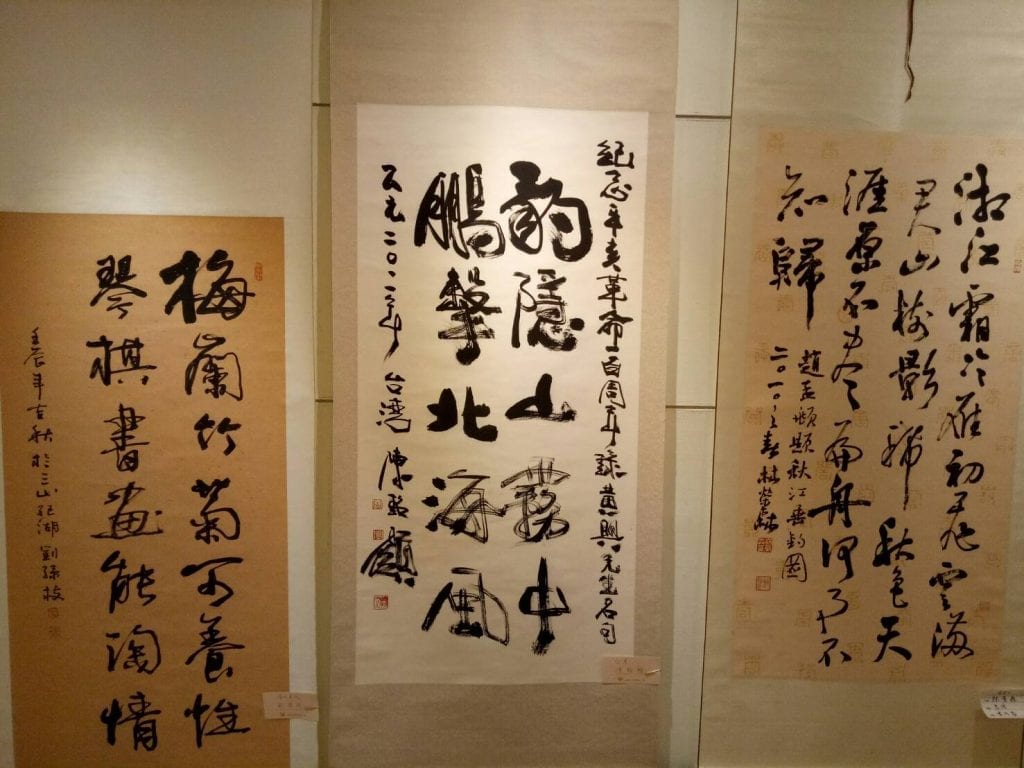 湘江霜冷雁初飛雲滿
君山樹影稀秋色天
涯原不盡扁舟何事不
知歸
趙孟頫題秋江垂釣圖
二〇一〇之春林榮森
紀念辛亥革命一百周年錄黃興先生名句
豹隱山霧中
鵬擊北海風
公元二〇一二年 台灣 陳
梅蘭竹菊可養性
琴棋書畫能陶情
壬辰年 秋於三山 湖劉